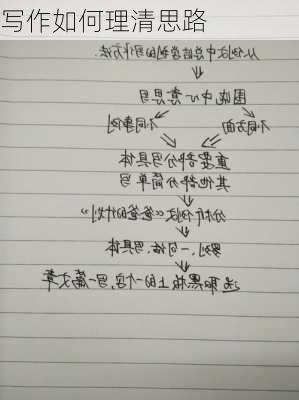 写作如何理清思路
从例文中总结学到的写作方法:
围绕中心意思写
不同方面 不同事例
重要部分写具体
其他部分简单写
分析例文《爸爸的计划》
一句话、写具体
选取黑板上的一个字,写一篇文章